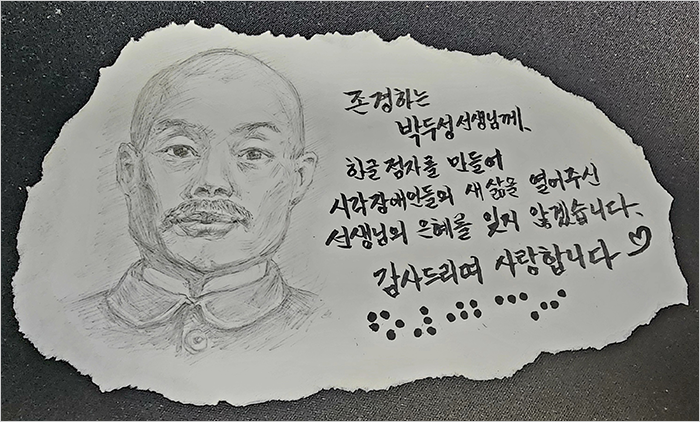 존경하는
박두성 선생님께.
한글 점자를 만들어
시각장애인들의 새 삶을 열어주신
선생님의 은혜를 잊지 않겠습니다.
감사드리며 사랑합니다 ♡